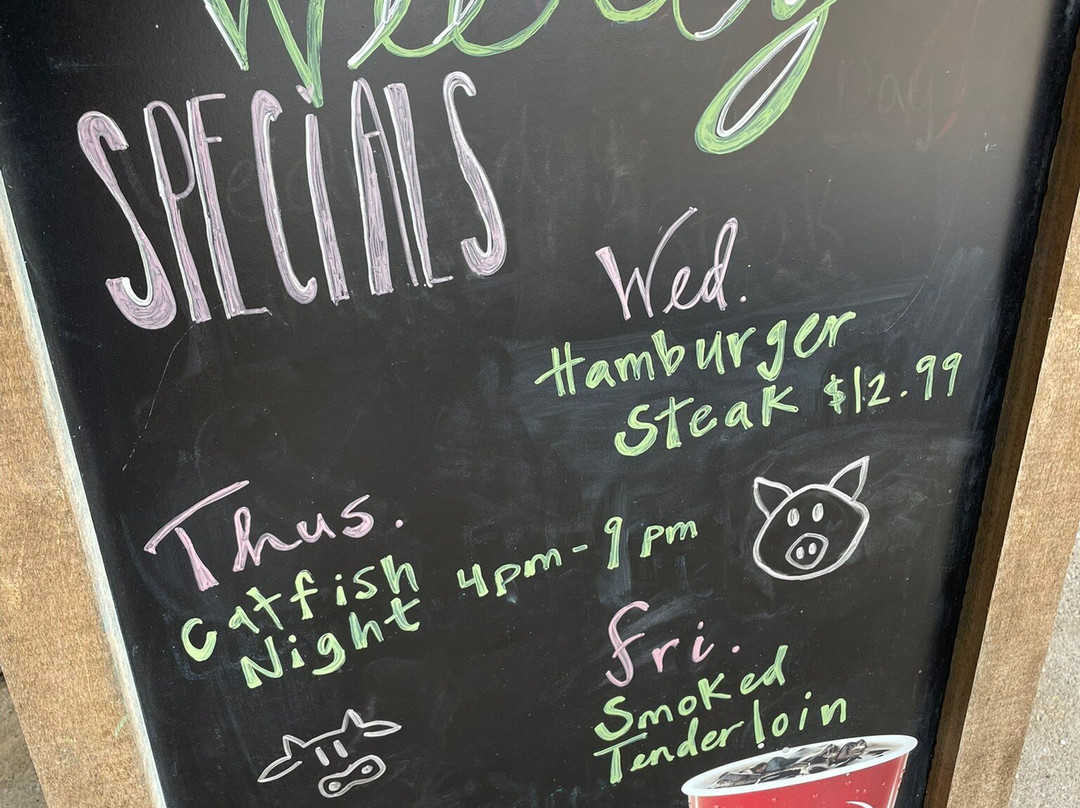 Weekly
SPECIALS
Wed.
Hamburger
Steak $12.99
Thus.
Catfish 4pm-9pm
Night
Fri.
Smoked
Tenderloin